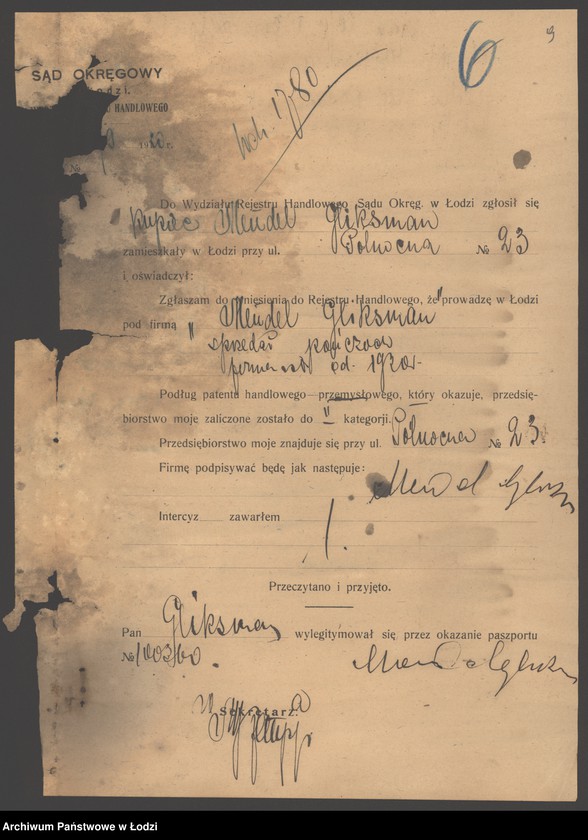 6
SĄD OKRĘGOWY
HANDLOWEGO
1920 r.
№
1780
Do Wydziału Rejestru Handlowego Sądu Okręg. w Łodzi zgłosił się
kupiec Mendel Gliksman
zamieszkały w Łodzi przy ul. Północna № 23
i oświadczył:
Zgłaszam do wniesienia do Rejestru Handlowego, że prowadzę w Łodzi
pod firmą " Mendel Gliksman "
sprzedaż pończoch
od 1920r
Podług patentu handlowego przemysłowego, który okazuje, przedsię-
biorstwo moje zaliczone zostało do II kategorji.
Przedsiębiorstwo moje znajduje się przy ul. Północna № 23
Firmę podpisywać będę jak następuje:
Intercyz zawarłem
Przeczytano i przyjęto.
Pan Gliksman wylegitymował się przez okazanie paszportu
№
Sekretarz
Archiwum Państwowe w Łodzi